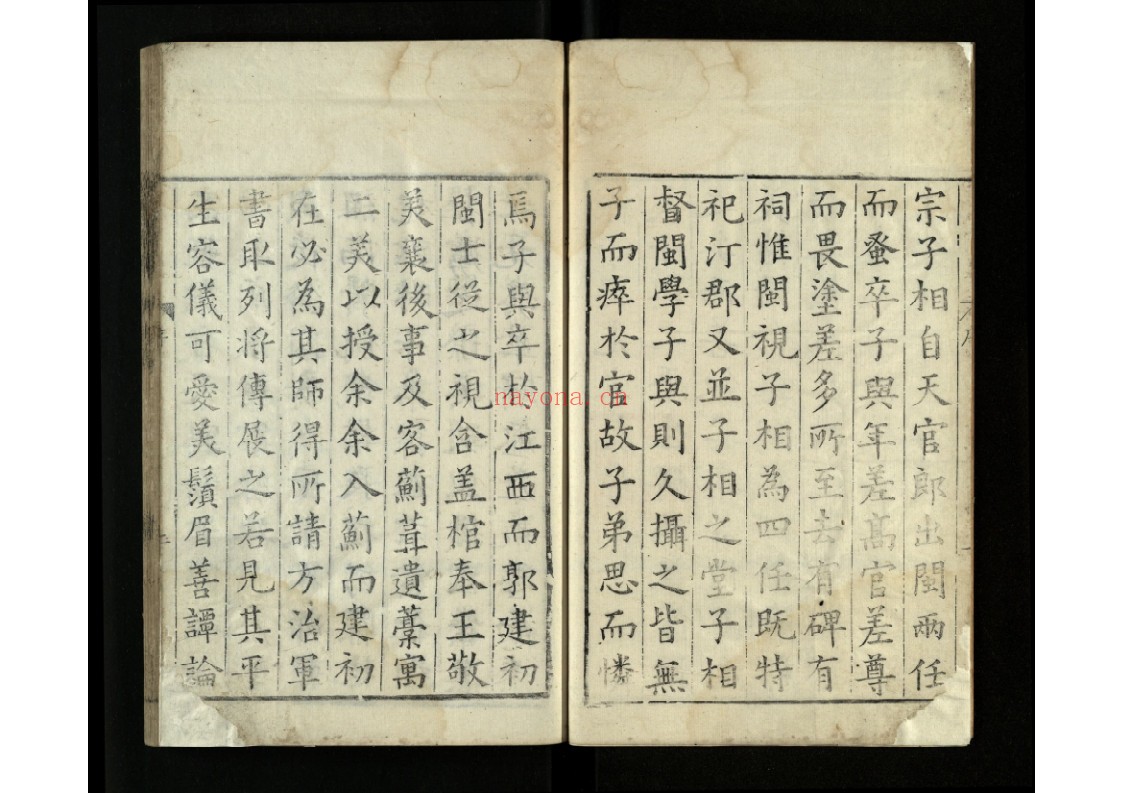 宗子相自天官郎出閩兩任
而蚤卒子與年差髙官差尊
而畏塗差多所至去有碑有
祠惟閩視子相為四任既特
祀汀郡又並子相之堂子相
督閩學子與則久攝之皆無
子而瘁於官故子弟思而憐
焉子與卒於江西而郭建初
閩士從之視含盖棺奉王敬
美襄後事及客薊葺遺藁寓
二美以授余余入薊而建初
在必為其師得所請方治軍
書取列將傳展之若見其平
生容儀可愛美鬚眉善譚論
nayona.cn